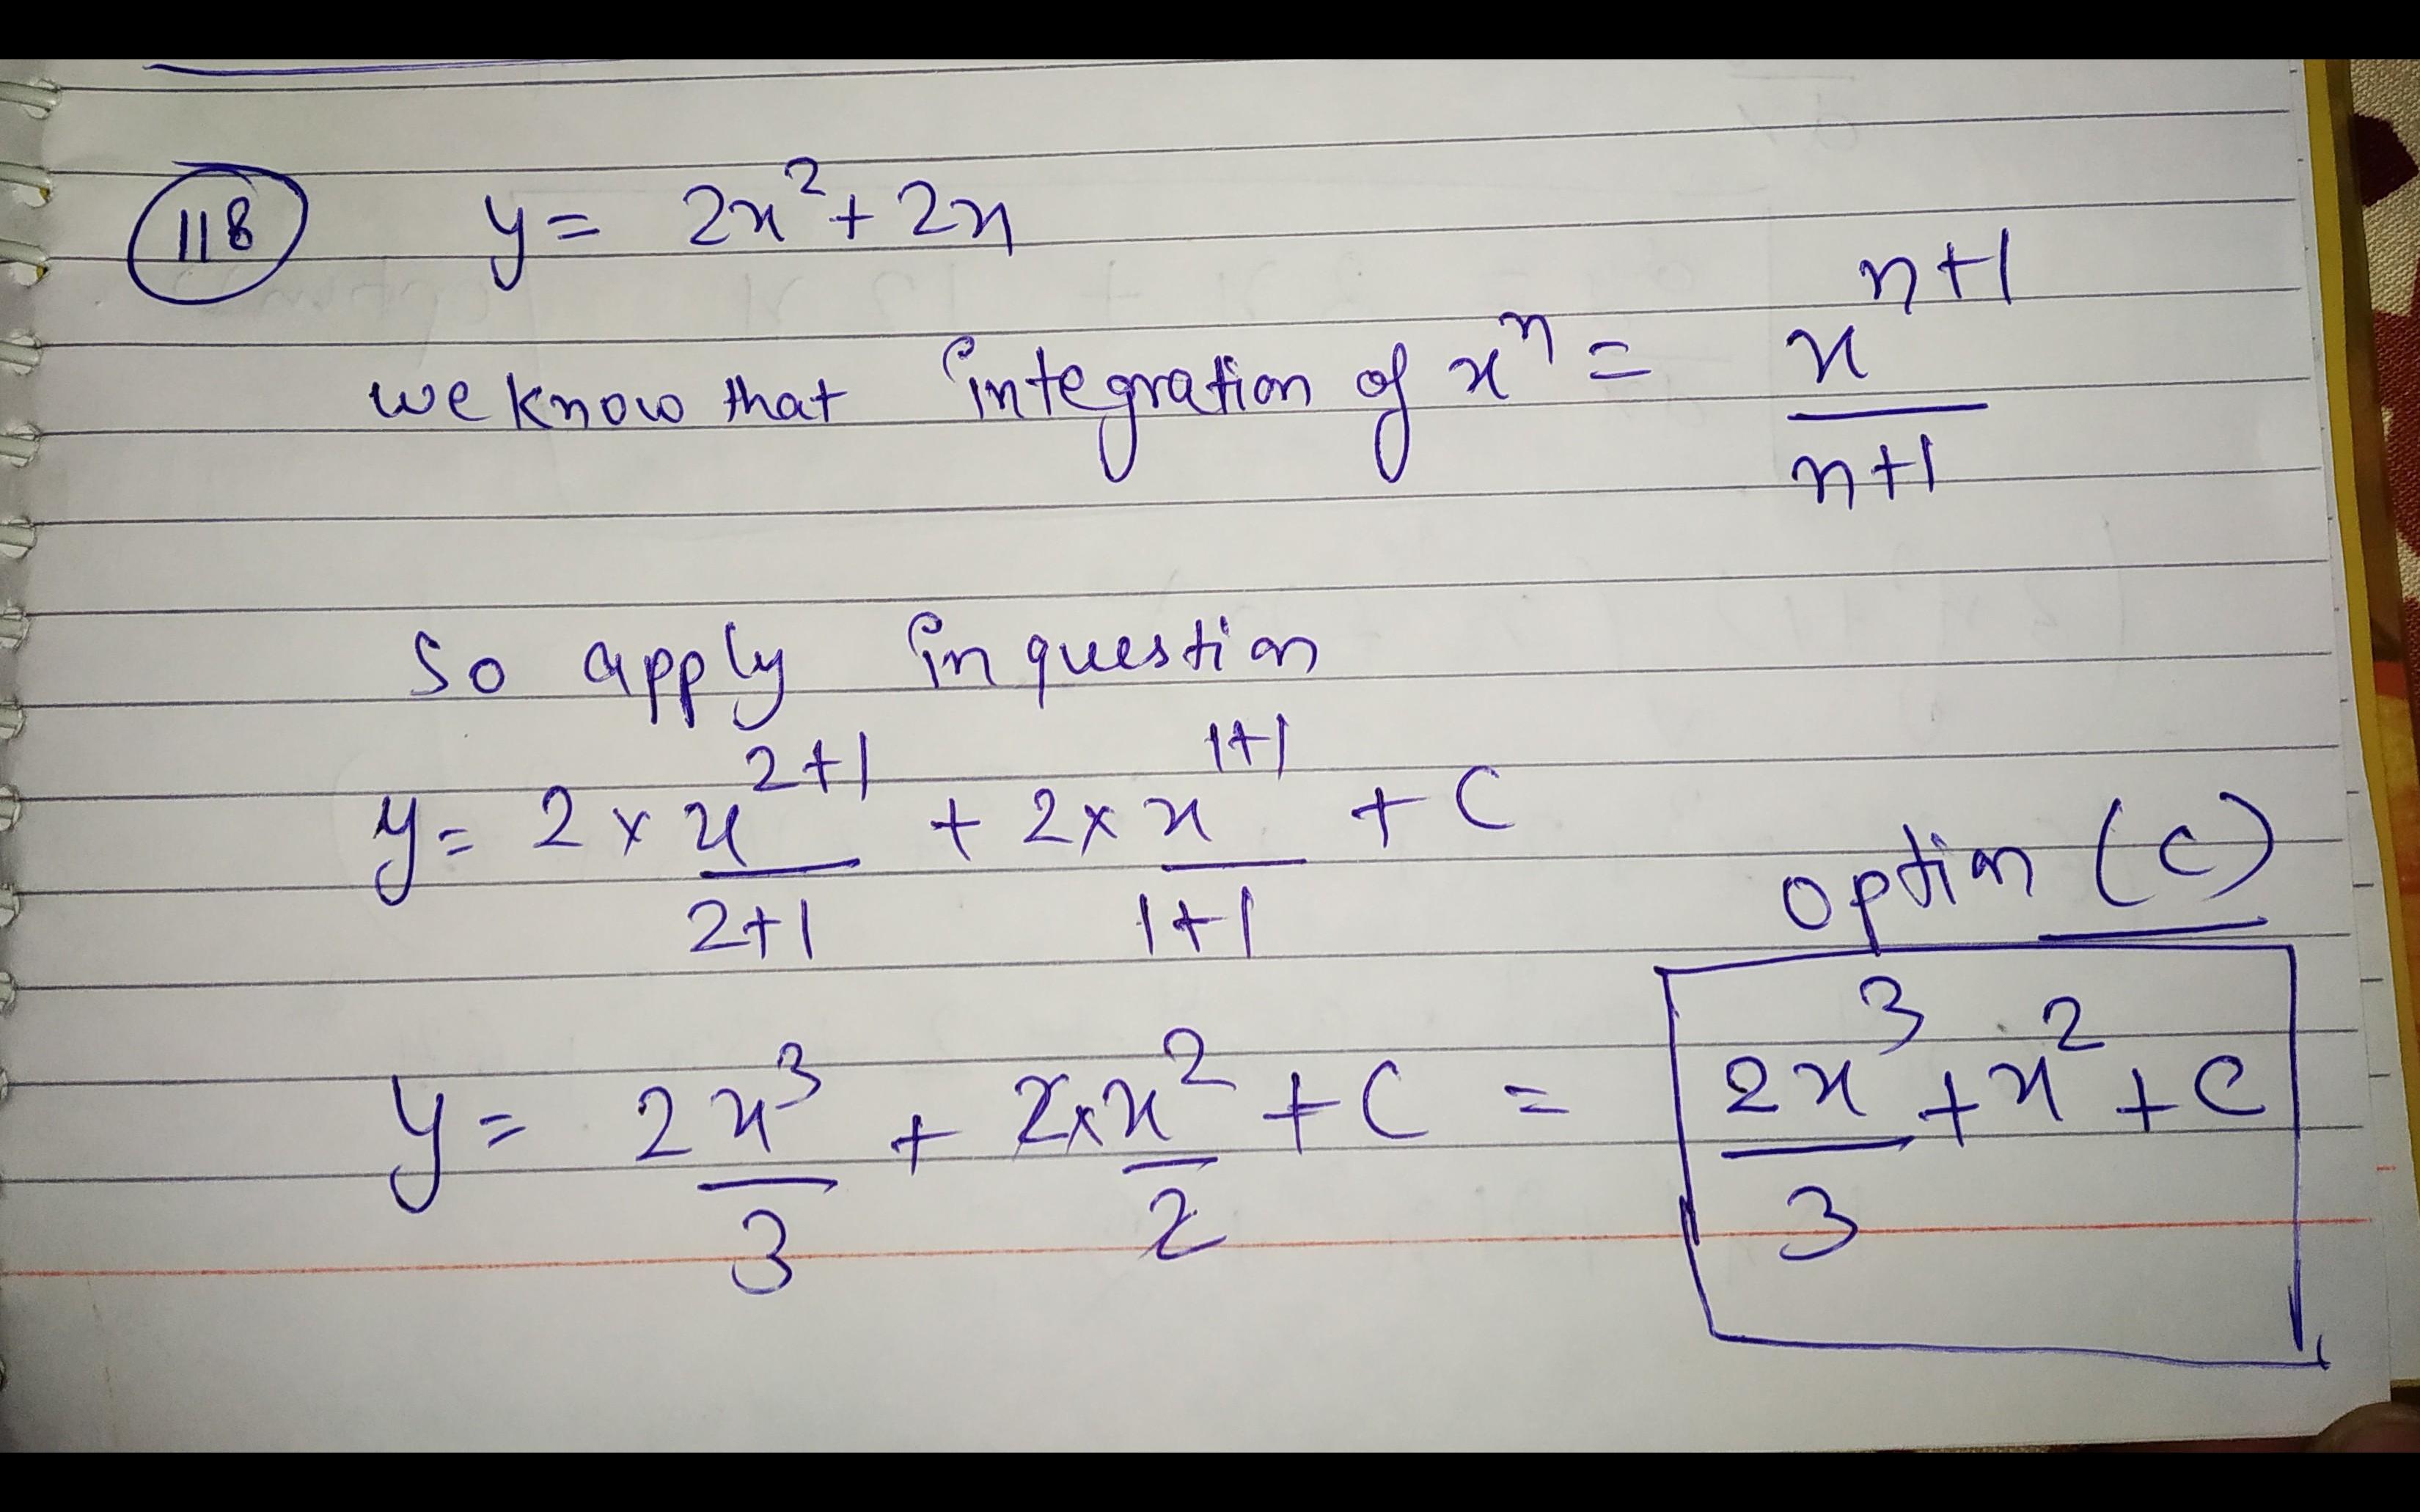 118 y = 2x² + 2x
we know that integration of xⁿ = x^(n+1) / (n+1)
So apply in question
y = 2 × x^(2+1) / (2+1) + 2 × x^(1+1) / (1+1) + C
option (C)
y = 2x³/3 + 2×x²/2 + C = 2x³/3 + x² + C